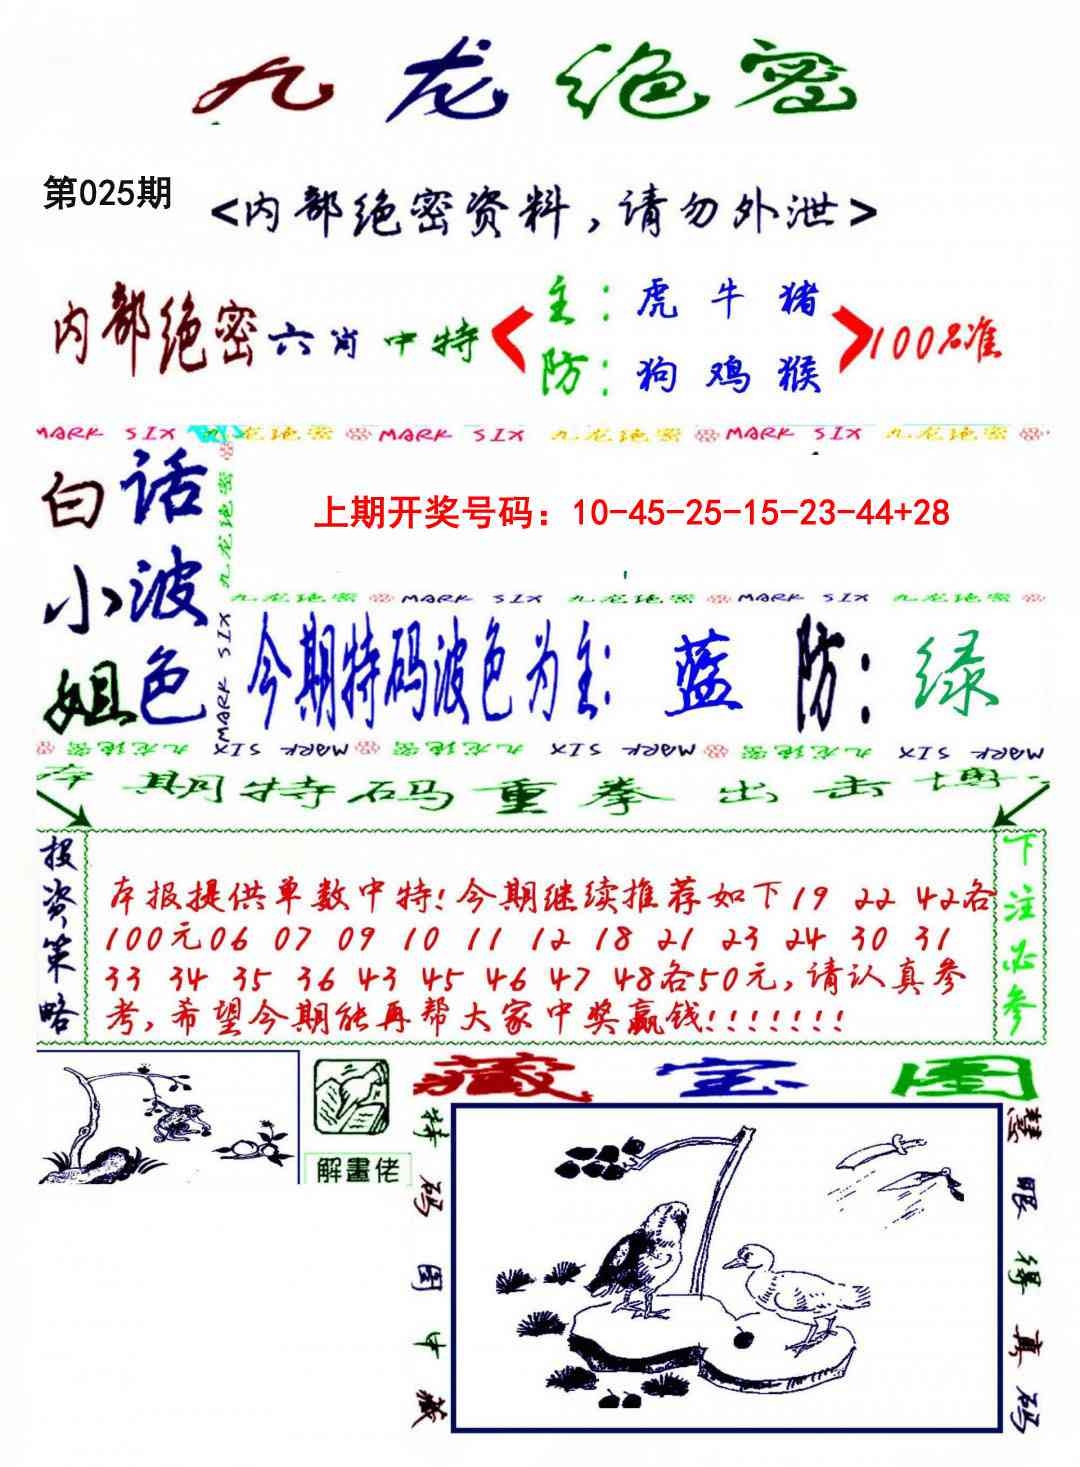 九龙绝密
第025期
<内部绝密资料,请勿外泄>
内部绝密六肖中特
主:虎 牛 猪
防:狗 鸡 猴
100%准
MARK SIX 九龙绝密 MARK SIX 九龙绝密 MARK SIX 九龙绝密
白小姐
话波色
九龙绝密
MARK SIX
上期开奖号码：10-45-25-15-23-44+28
九龙绝密 MARK SIX 九龙绝密 MARK SIX 九龙绝密
今期特码波色为主:蓝 防:绿
九龙绝密 MARK SIX 九龙绝密 MARK SIX 九龙绝密 MARK SIX
本期特码重拳出击博
投资策略
本报提供单数中特!今期继续推荐如下19 22 42各
100元06 07 09 10 11 12 18 21 23 24 30 31
33 34 35 36 43 45 46 47 48各50元,请认真参
考,希望今期能再帮大家中奖赢钱!!!!!!!
下注必参
解畫佬
藏宝图
特码图中藏
慧眼得真码